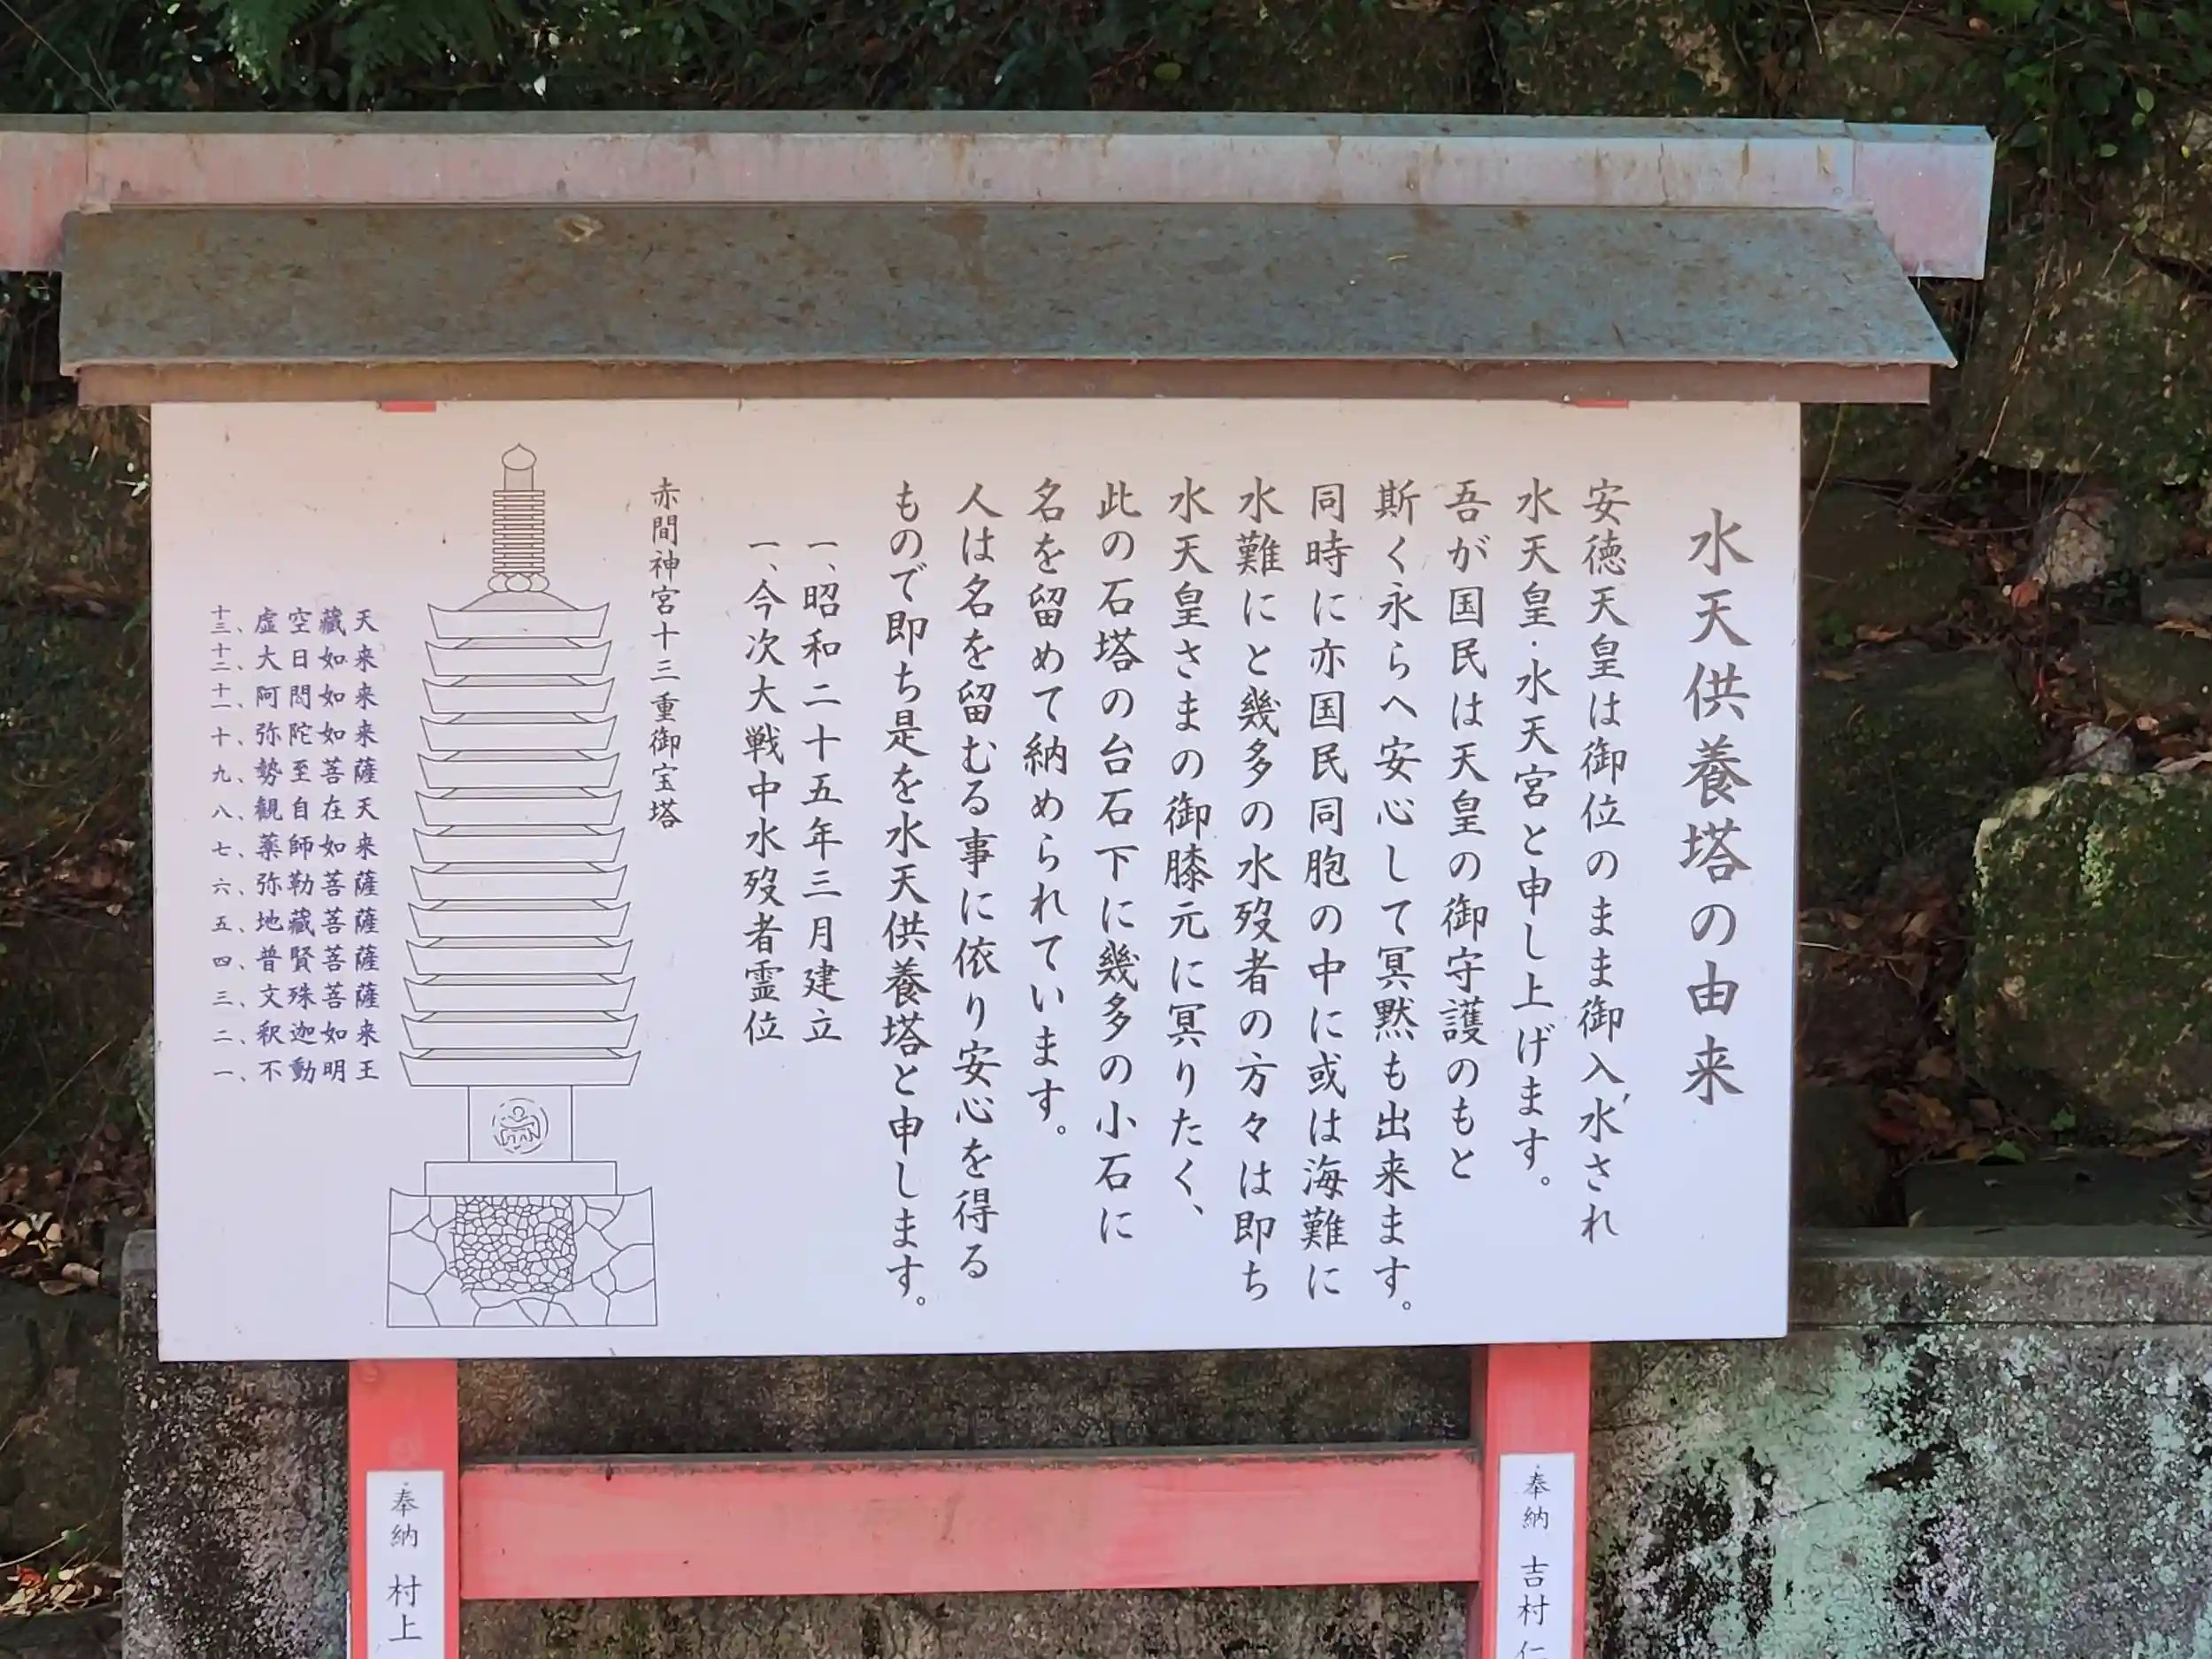 水天供養塔の由来
安徳天皇は御位のまま御入水され
水天皇・水天宮と申し上げます。
吾が国民は天皇の御守護のもと
斯く永らへ安心して冥黙も出来ます。
同時に亦国民同胞の中に或は海難に
水難にと幾多の水歿者の方々は即ち
水天皇さまの御膝元に冥りたく、
此の石塔の台石下に幾多の小石に
名を留めて納められています。
人は名を留むる事に依り安心を得る
もので即ち是を水天供養塔と申します。
一、昭和二十五年三月建立
一、今次大戦中水歿者霊位
赤間神宮十三重御宝塔
十三、虚空藏天
十二、大日如来
十一、阿閦如来
十、弥陀如来
九、勢至菩薩
八、観自在天
七、薬師如来
六、弥勒菩薩
五、地藏菩薩
四、普賢菩薩
三、文殊菩薩
二、釈迦如来
一、不動明王
奉納 吉村仁
奉納 村上